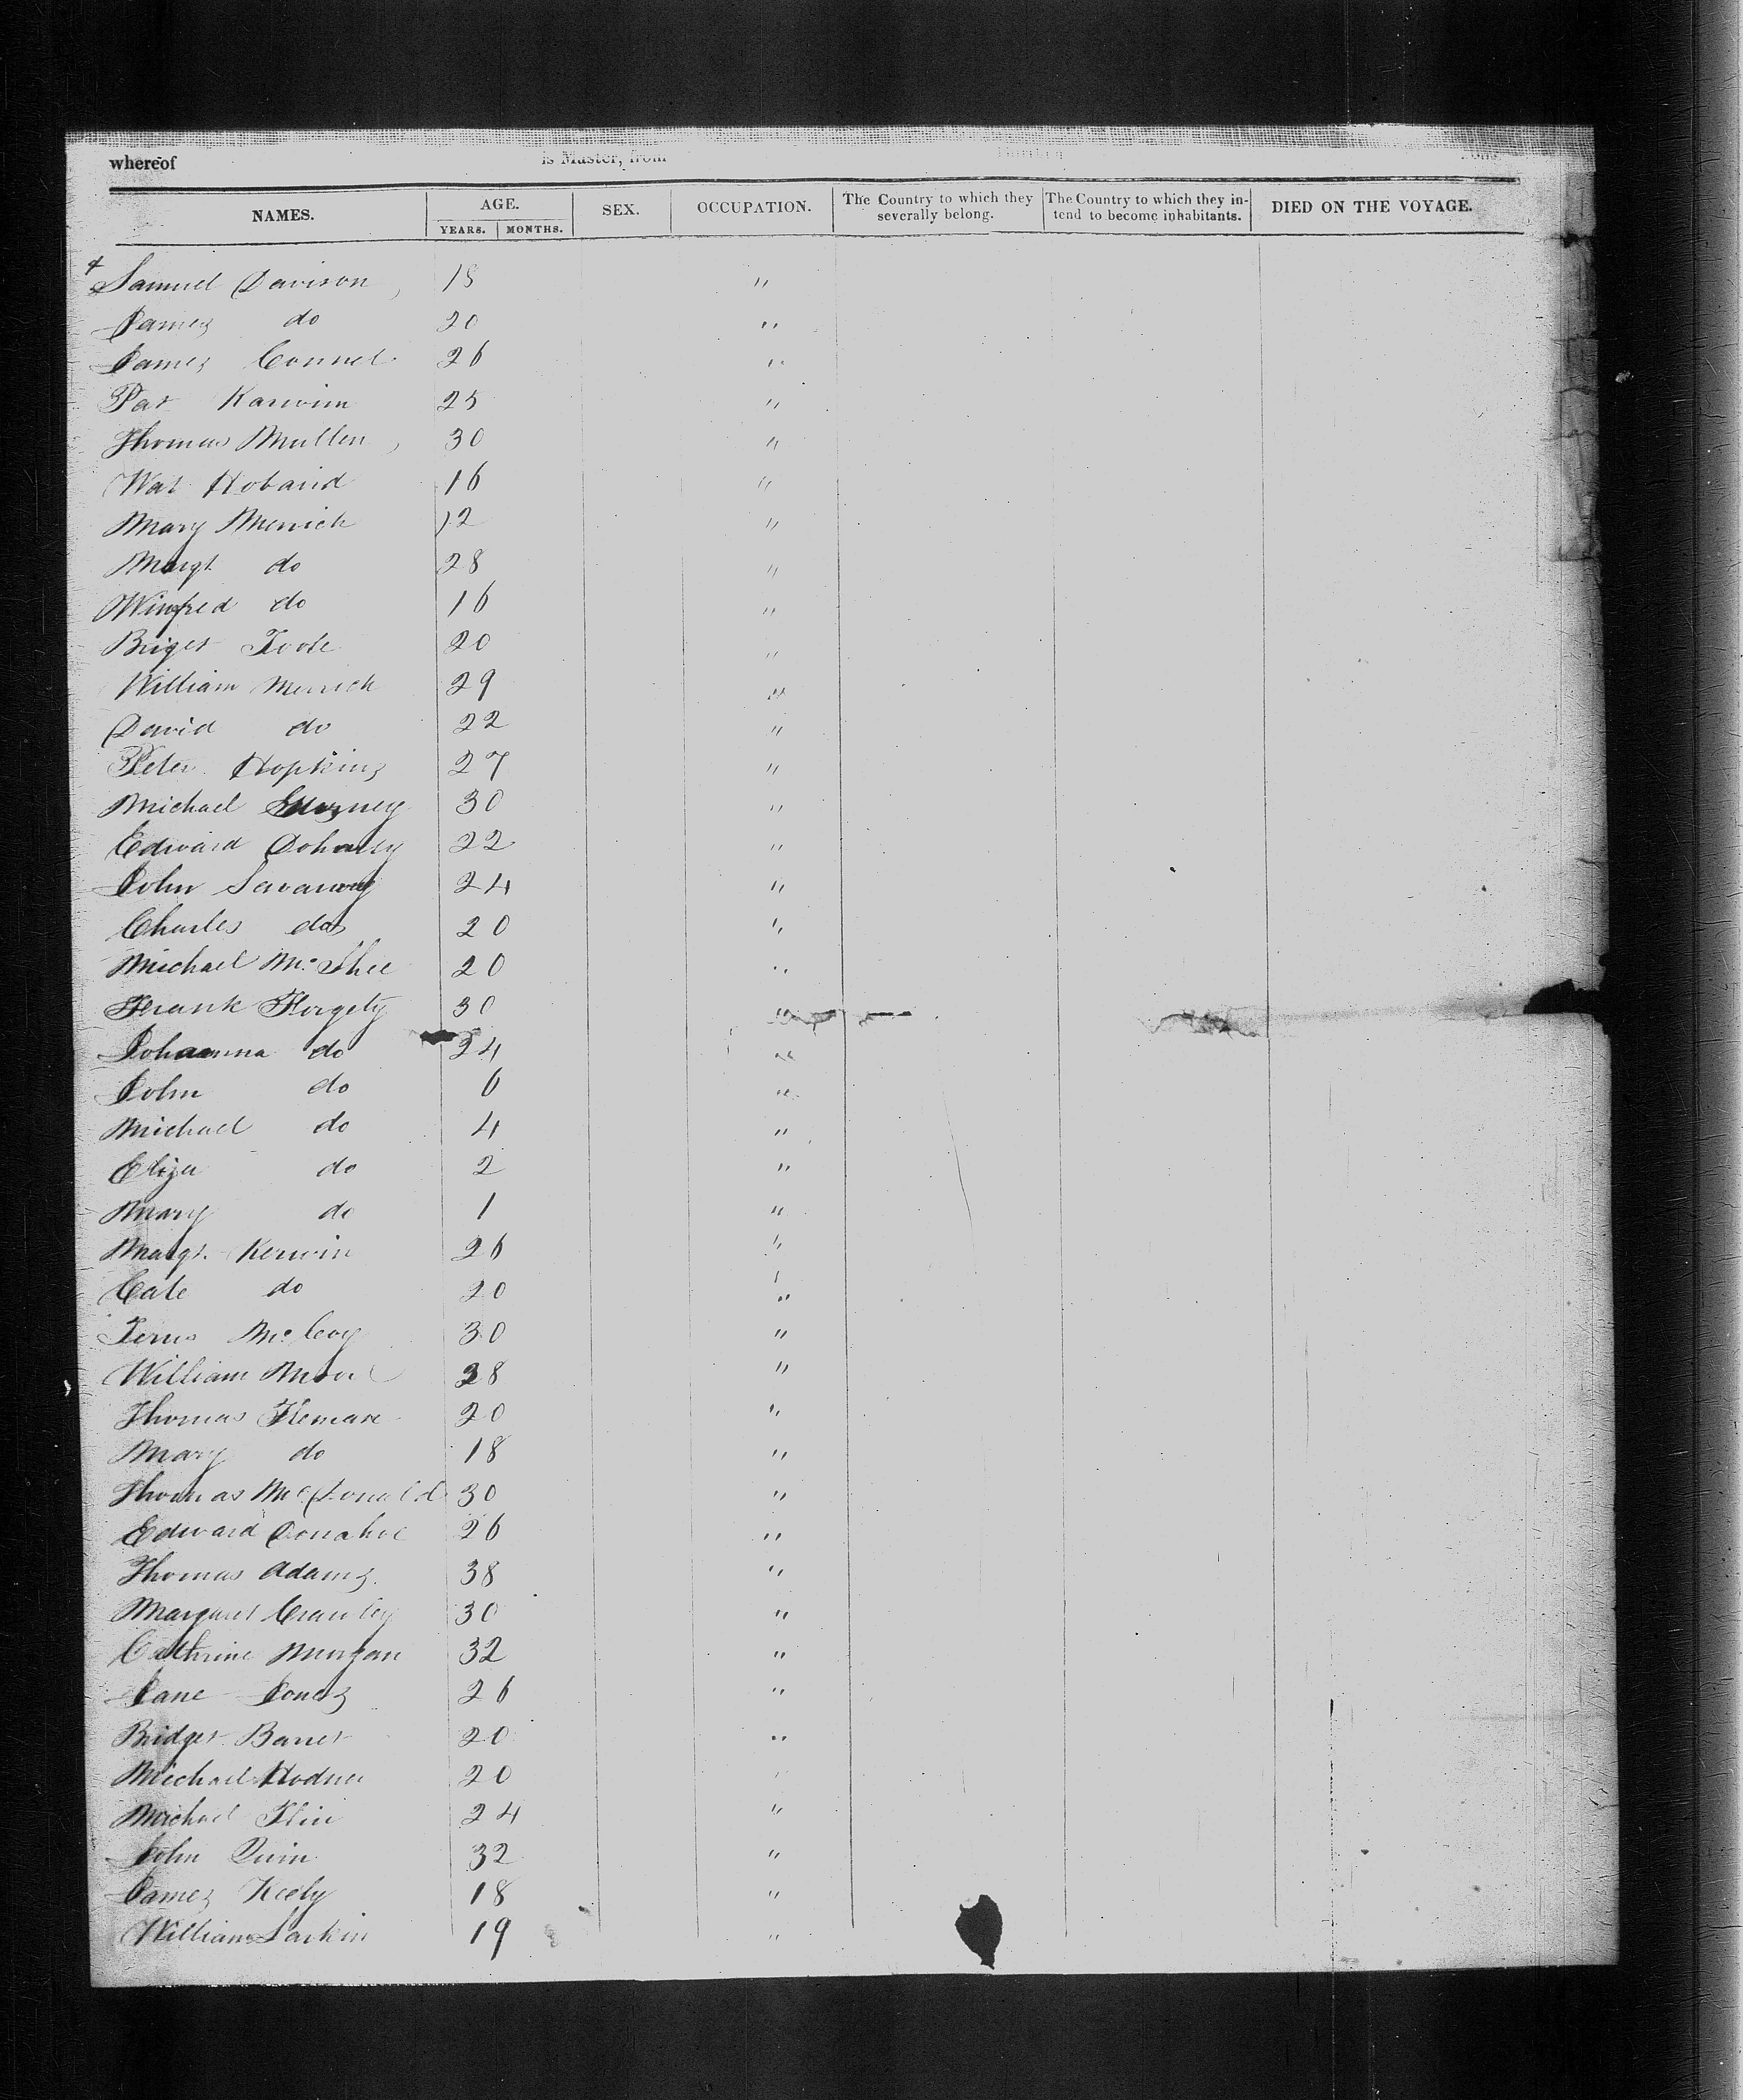 whereof is Master, from Burthen
NAMES. AGE. SEX. OCCUPATION. The Country to which they severally belong. The Country to which they intend to become inhabitants. DIED ON THE VOYAGE.
YEARS. MONTHS.
Samuel Davison 18 "
James do 20 "
James Connel 26 "
Pat Karwin 25 "
Thomas Mullen 30 "
Wat Hoband 16 "
Mary Merrick 12 "
Margt do 28 "
Winfred do 16 "
Briget Toole 20 "
William Merrick 29 "
David do 22 "
Peter Hopkins 27 "
Michael 30 "
Edward Doharty 22 "
John 24 "
Charles do 20 "
Michael Mc Ghee 20 "
Frank Forgety 30 "
Johanna do 24 "
John do 6 "
Michael do 4 "
Eliza do 2 "
Mary do 1 "
Margt. Kerwin 26 "
Cate do 20 "
Terns Mc Coy 30 "
William Moore 28 "
Thomas Fleman 20 "
Mary do 18 "
Thomas Mc Donald 30 "
Edward Donahoe 26 "
Thomas Adams 38 "
Margaret Crawley 30 "
Cathrine Morgan 32 "
Jane Jones 26 "
Bridget Barret 20 "
Michael Hodner 20
Michael Flin 24 "
John Quin 32 "
James Keely 18 "
William Larkin 19 "